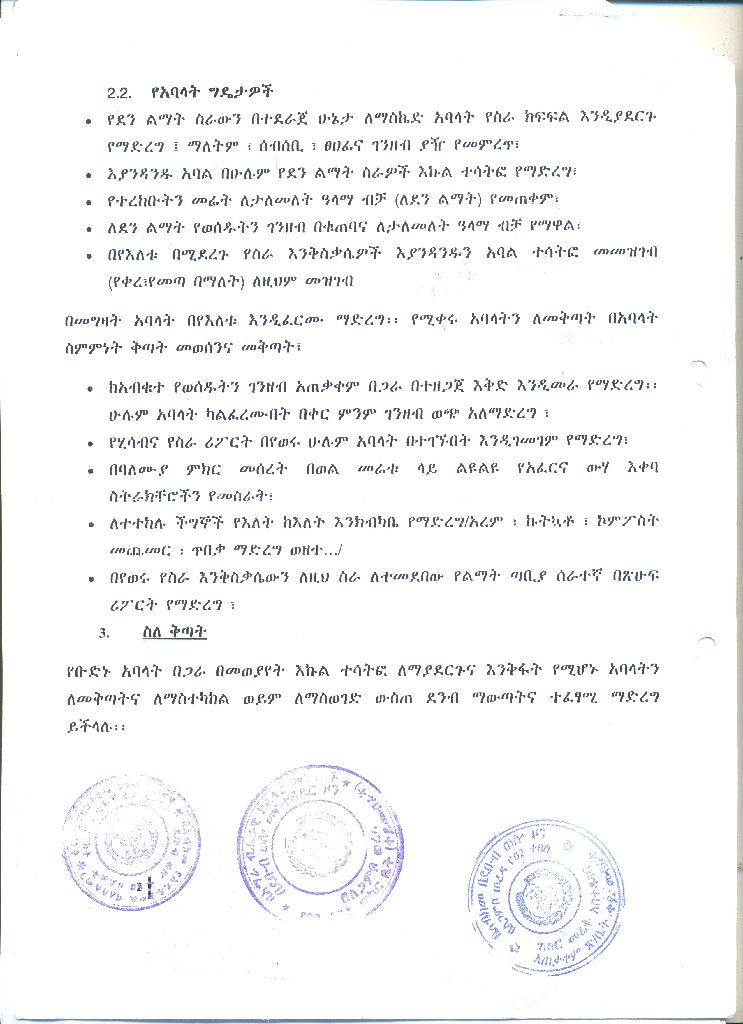 2.2. የአባላት ግዴታዎች
• የደን ልማት ስራውን በተደራጀ ሁኔታ ለማስኬድ አባላት የስራ ክፍፍል እንዲያደርጉ
የማድረግ ፤ ማለትም ፣ ሰብሰቢ ፣ ፀሀፊና ገንዘብ ያዥ የመምረጥ፣
• እያንዳንዱ አባል በሁሉም የደን ልማት ስራዎች እኩል ተሳትፎ የማድረግ፣
• የተረከቡትን መሬት ለታለመለት ዓላማ ብቻ (ለደን ልማት) የመጠቀም፣
• ለደን ልማት የወሰዱትን ገንዘብ በቁጠባና ለታለመለት ዓላማ ብቻ የማዋል፣
• በየእለቱ በሚደረጉ የስራ እንቅስቃሴዎች እያንዳንዱን አባል ተሳትፎ መመዝገብ
(የቀረ፣የመጣ በማለት) ለዚህም መዝገብ
በመግዛት አባላት በየእለቱ እንዲፈርሙ ማድረግ፡፡ የሚቀሩ አባላትን ለመቅጣት በአባላት
ስምምነት ቅጣት መወሰንና መቅጣት፤
• ከአብቁተ የወሰዱትን ገንዘብ አጠቃቀም በጋራ በተዘጋጀ እቅድ እንዲመራ የማድረግ፡፡
ሁሉም አባላት ካልፈረሙበት በቀር ምንም ገንዘብ ወጭ አለማድረግ ፣
• የሂሳብና የስራ ሪፖርት በየወሩ ሁሉም አባላት በተገኙበት እንዲገመገም የማድረግ፣
• በባለሙያ ምክር መሰረት በወል መሬቱ ላይ ልዩልዩ የአፈርና ውሃ እቀባ
ስትራክቸሮችን የመስራት፣
• ለተተከሉ ችግኞች የእለት ከእለት እንክብካቤ የማድረግ/አረም ፣ ኩትኳቶ ፣ ኮምፖስት
መጨመር ፣ ጥበቃ ማድረግ ወዘተ.../
• በየወሩ የስራ እንቅስቃሴውን ለዚህ ስራ ለተመደበው የልማት ጣቢያ ሰራተኛ በጽሁፍ
ሪፖርት የማድረግ ፣
3. ስለ ቅጣት
የቡድኑ አባላት በጋራ በመወያየት እኩል ተሳትፎ ለማያደርጉና እንቅፋት የሚሆኑ አባላትን
ለመቅጣትና ለማስተካከል ወይም ለማስወገድ ውስጠ ደንብ ማውጣትና ተፈፃሚ ማድረግ
ይችላሉ፡፡